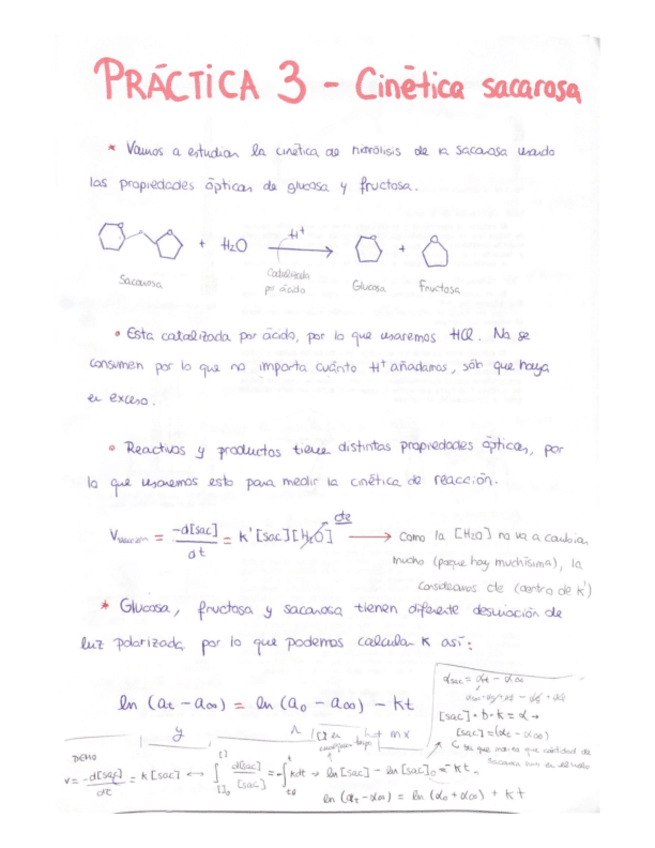 PRÁCTICA 3 - Cinética sacarosa
* Vamos a estudiar la cinética de hidrólisis de la sacarosa usando
las propiedades ópticas de glucosa y fructosa.
+ H₂O H⁺ +
Sacarosa Catalizada por ácido Glucosa Fructosa
• Esta catalizada por ácido, por lo que usaremos HCl. No se
consumen por lo que no importa cuánto H⁺ añadamos, sólo que haya
en exceso.
• Reactivos y productos tiene distintas propiedades ópticas, por
lo que usaremos esto para medir la cinética de reacción.
Vreacción = -d[sac]/dt = k'[sac][H₂O] cte → Como la [H₂O] no va a cambiar
mucho (porque hay muchísima), la
consideramos cte (dentro de k')
* Glucosa, fructosa y sacarosa tienen diferente desviación de
luz polarizada, por lo que podemos calcular K así:
αsac = αt - α∞
ln (at - a∞) = ln (a₀ - a∞) - kt
[sac]·b·k = α →
[sac] = (αt - α∞)
y n + mx
DEMO
v = -d[sac]/dt = k[sac] ↔ ∫ d[sac]/[sac] = -∫ kdt → ln[sac] - ln[sac]₀ = -kt
ln (αt - α∞) = ln (α₀ + α∞) + kt